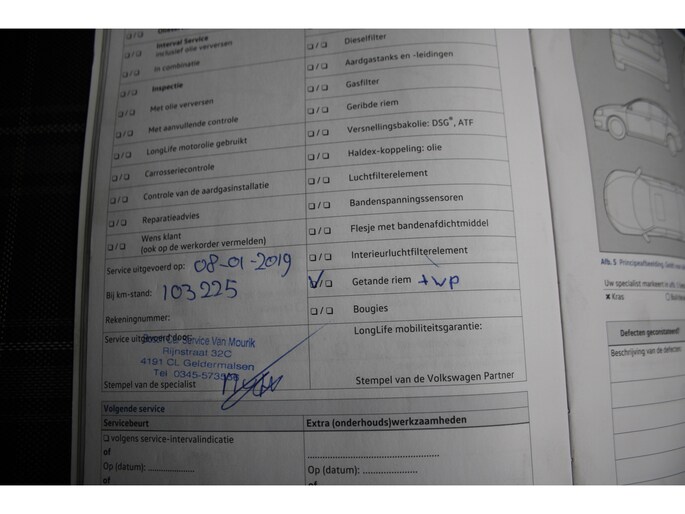 Interval Service
inclusief olie verversen
In combinatie
Inspectie
Met olie verversen
Met aanvullende controle
LongLife motorolie gebruikt
Carrosseriecontrole
Controle van de aardgasinstallatie
Reparatieadvies
Wens klant
(ook op de werkorder vermelden)
Service uitgevoerd op: 08-01-2019
Bij km-stand: 103225
Rekeningnummer:
Service uitgevoerd door:
Bosch Car Service Van Mourik
Rijnstraat 32C
4191 CL Geldermalsen
Tel 0345-573
Stempel van de specialist
Dieselfilter
Aardgastanks en -leidingen
Gasfilter
Geribde riem
Versnellingsbakolie: DSG®, ATF
Haldex-koppeling: olie
Luchtfilterelement
Bandenspanningssensoren
Flesje met bandenafdichtmiddel
Interieurluchtfilterelement
Getande riem +wp
Bougies
LongLife mobiliteitsgarantie:
Stempel van de Volkswagen Partner
Volgende service
Servicebeurt
Extra (onderhouds)werkzaamheden
volgens service-intervalindicatie
of
Op (datum):
of
of
Op (datum):
of
Afb. 5 Principeafbeelding.
Uw specialist markeert in afb.
Kras
Defecten geconstateerd?
Beschrijving van de defecten: